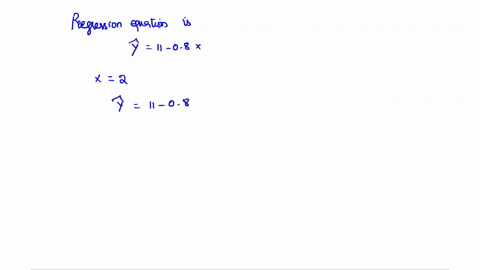 Regression equation is
Ŷ = 11 - 0.8 x
x = 2
Ŷ = 11 - 0.8